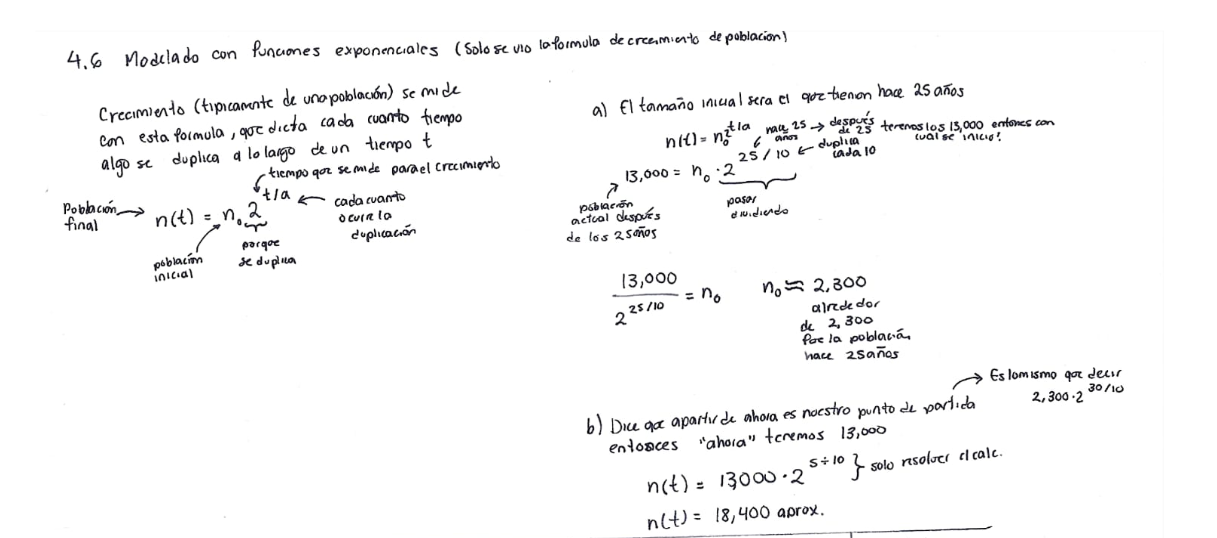 4.6 Modelado con funciones exponenciales (Solo se vio la formula de crecimiento de poblacion)
Crecimiento (tipicamente de una población) se mide
con esta formula, que dicta cada cuanto tiempo
algo se duplica a lo largo de un tiempo t
tiempo que se mide para el crecimiento
Población final
n(t) = n₀ 2^(t/a)
cada cuanto
ocurre la
duplicación
población
inicial
porque
se duplica
a) El tamaño inicial sera el que tienen hace 25 años
n(t) = n₀ 2^(t/a)
hace 25 años → después de 25 tenemos los 13,000 entonces con cual se inicio?
13,000 = n₀ · 2^(25/10) ← duplica cada 10
población
actual después
de los 25 años
pasar
dividiendo
13,000 / 2^(25/10) = n₀
n₀ ≈ 2,300
alrededor
de 2,300
fue la población
hace 25 años
b) Dice que apartir de ahora es nuestro punto de partida
→ Es lo mismo que decir
2,300·2^(30/10)
entonces "ahora" tenemos 13,000
n(t) = 13000 · 2^(5÷10) } solo resolver el calc.
n(t) = 18,400 aprox.